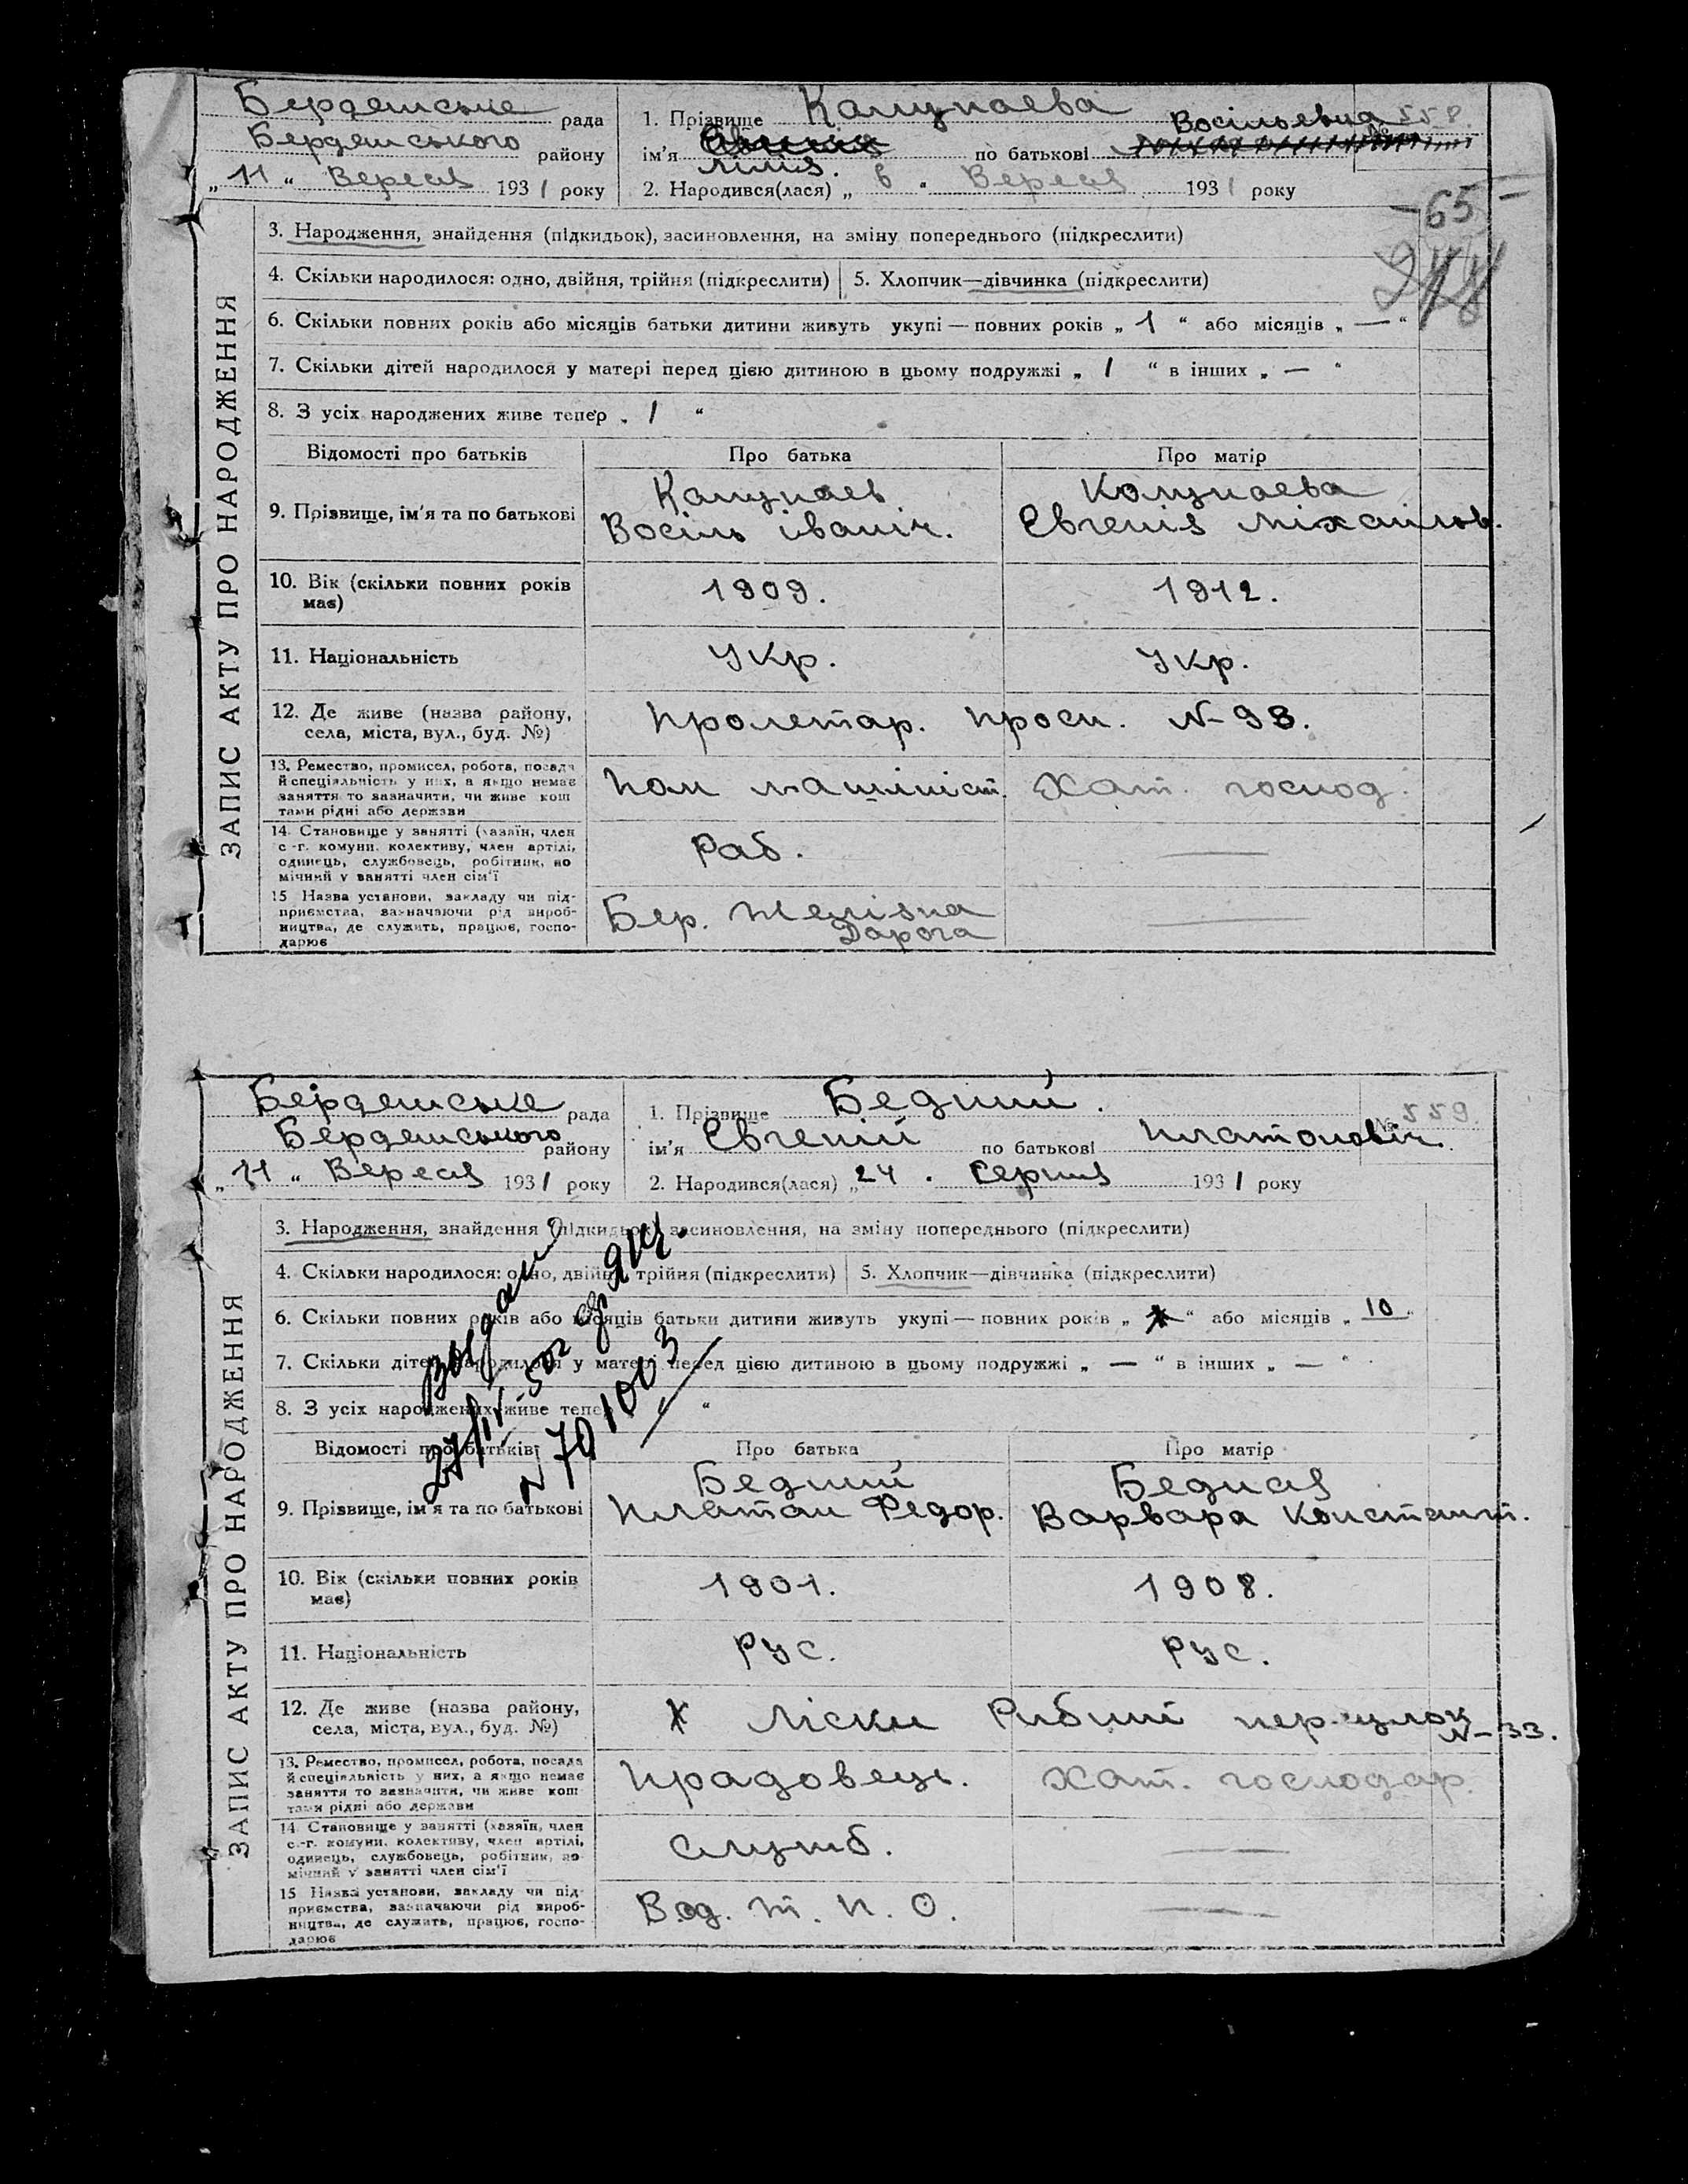 Бердянське рада
Бердянського району
„11“ Вересня 1931 року
1. Прізвище Калупаева
ім'я Лілія. по батькові Восільевна
№ 558.
2. Народився(лася) „6“ Вересня 1931 року
– 65 –
ЗАПИС АКТУ ПРО НАРОДЖЕННЯ
3. Народження, знайдення (підкидьок), засиновлення, на зміну попереднього (підкреслити)
4. Скільки народилося: одно, двійня, трійня (підкреслити) 5. Хлопчик—дівчинка (підкреслити)
6. Скільки повних років або місяців батьки дитини живуть укупі — повних років „ 1 “ або місяців „ — “
7. Скільки дітей народилося у матері перед цією дитиною в цьому подружжі „ 1 “ в інших „ — “
8. З усіх народжених живе тепер „ 1 “
Відомості про батьків Про батька Про матір
9. Прізвище, ім'я та по батькові
Калупаев
Восіль іваніч.
Колупаева
Евгенія Міхаилов.
10. Вік (скільки повних років має) 1909. 1912.
11. Національність Укр. Укр.
12. Де живе (назва району, села, міста, вул., буд. №) Пролетар. просп. N-93.
13. Ремество, промисел, робота, посада й спеціяльність у них, а якщо немає заняття то зазначити, чи живе коштами рідні або держави
Пом машініст. Хат. господ.
14. Становище у занятті (хазяїн, член с.-г. комуни, колективу, член артілі, одинець, службовець, робітник, помічний у занятті член сім'ї
Раб. —
15 Назва установи, закладу чи підприємства, зазначаючи рід виробництва, де служить, працює, господарює
Бер. Желізна
Дорога —
Бердянське рада
Бердянського району
„11“ Вересня 1931 року
1. Прізвище Бедний.
ім'я Евгеній по батькові Платоновіч.
№ 559.
2. Народився(лася) „24. Серпня 1931 року
ЗАПИС АКТУ ПРО НАРОДЖЕННЯ
3. Народження, знайдення (підкидьок) засиновлення, на зміну попереднього (підкреслити)
4. Скільки народилося: одно, двійня, трійня (підкреслити) 5. Хлопчик—дівчинка (підкреслити)
6. Скільки повних років або місяців батьки дитини живуть укупі — повних років „ “ або місяців „ 10 “
7. Скільки дітей народилося у матері перед цією дитиною в цьому подружжі „ — “ в інших „ — “
8. З усіх народжених живе тепер „ “
Відомості про батьків Про батька Про матір
9. Прізвище, ім'я та по батькові
Бедний
Платон Федор.
Бедная
Варвара Констант.
10. Вік (скільки повних років має) 1901. 1908.
11. Національність Рус. Рус.
12. Де живе (назва району, села, міста, вул., буд. №) х Ліски Рибний перєулок N-33.
13. Ремество, промисел, робота, посада й спеціяльність у них, а якщо немає заняття то зазначити, чи живе коштами рідні або держави
Прадовець. Хат. господар.
14. Становище у занятті (хазяїн, член с.-г. комуни, колективу, член артілі, одинець, службовець, робітник, помічний у занятті член сім'ї
Служб. —
15 Назва установи, закладу чи підприємства, зазначаючи рід виробництва, де служить, працює, господарює
Вод. т. п. о. —